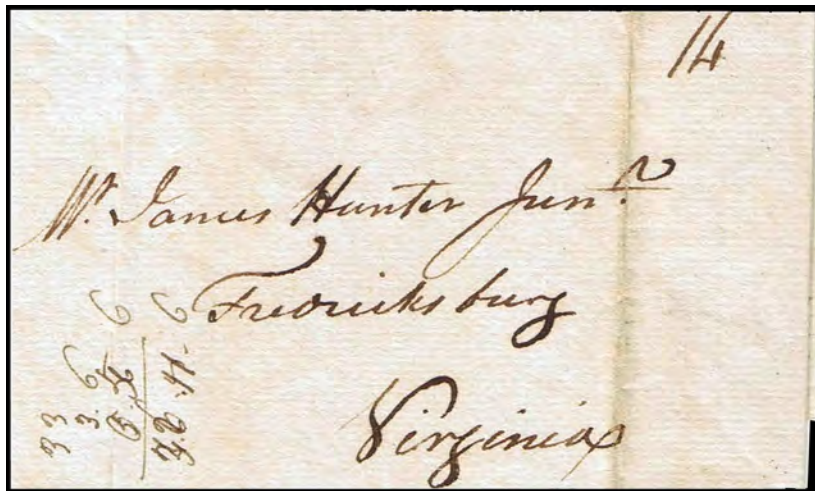 14
Mr. James Hunter Junr.
Fredricksburg
Virginia